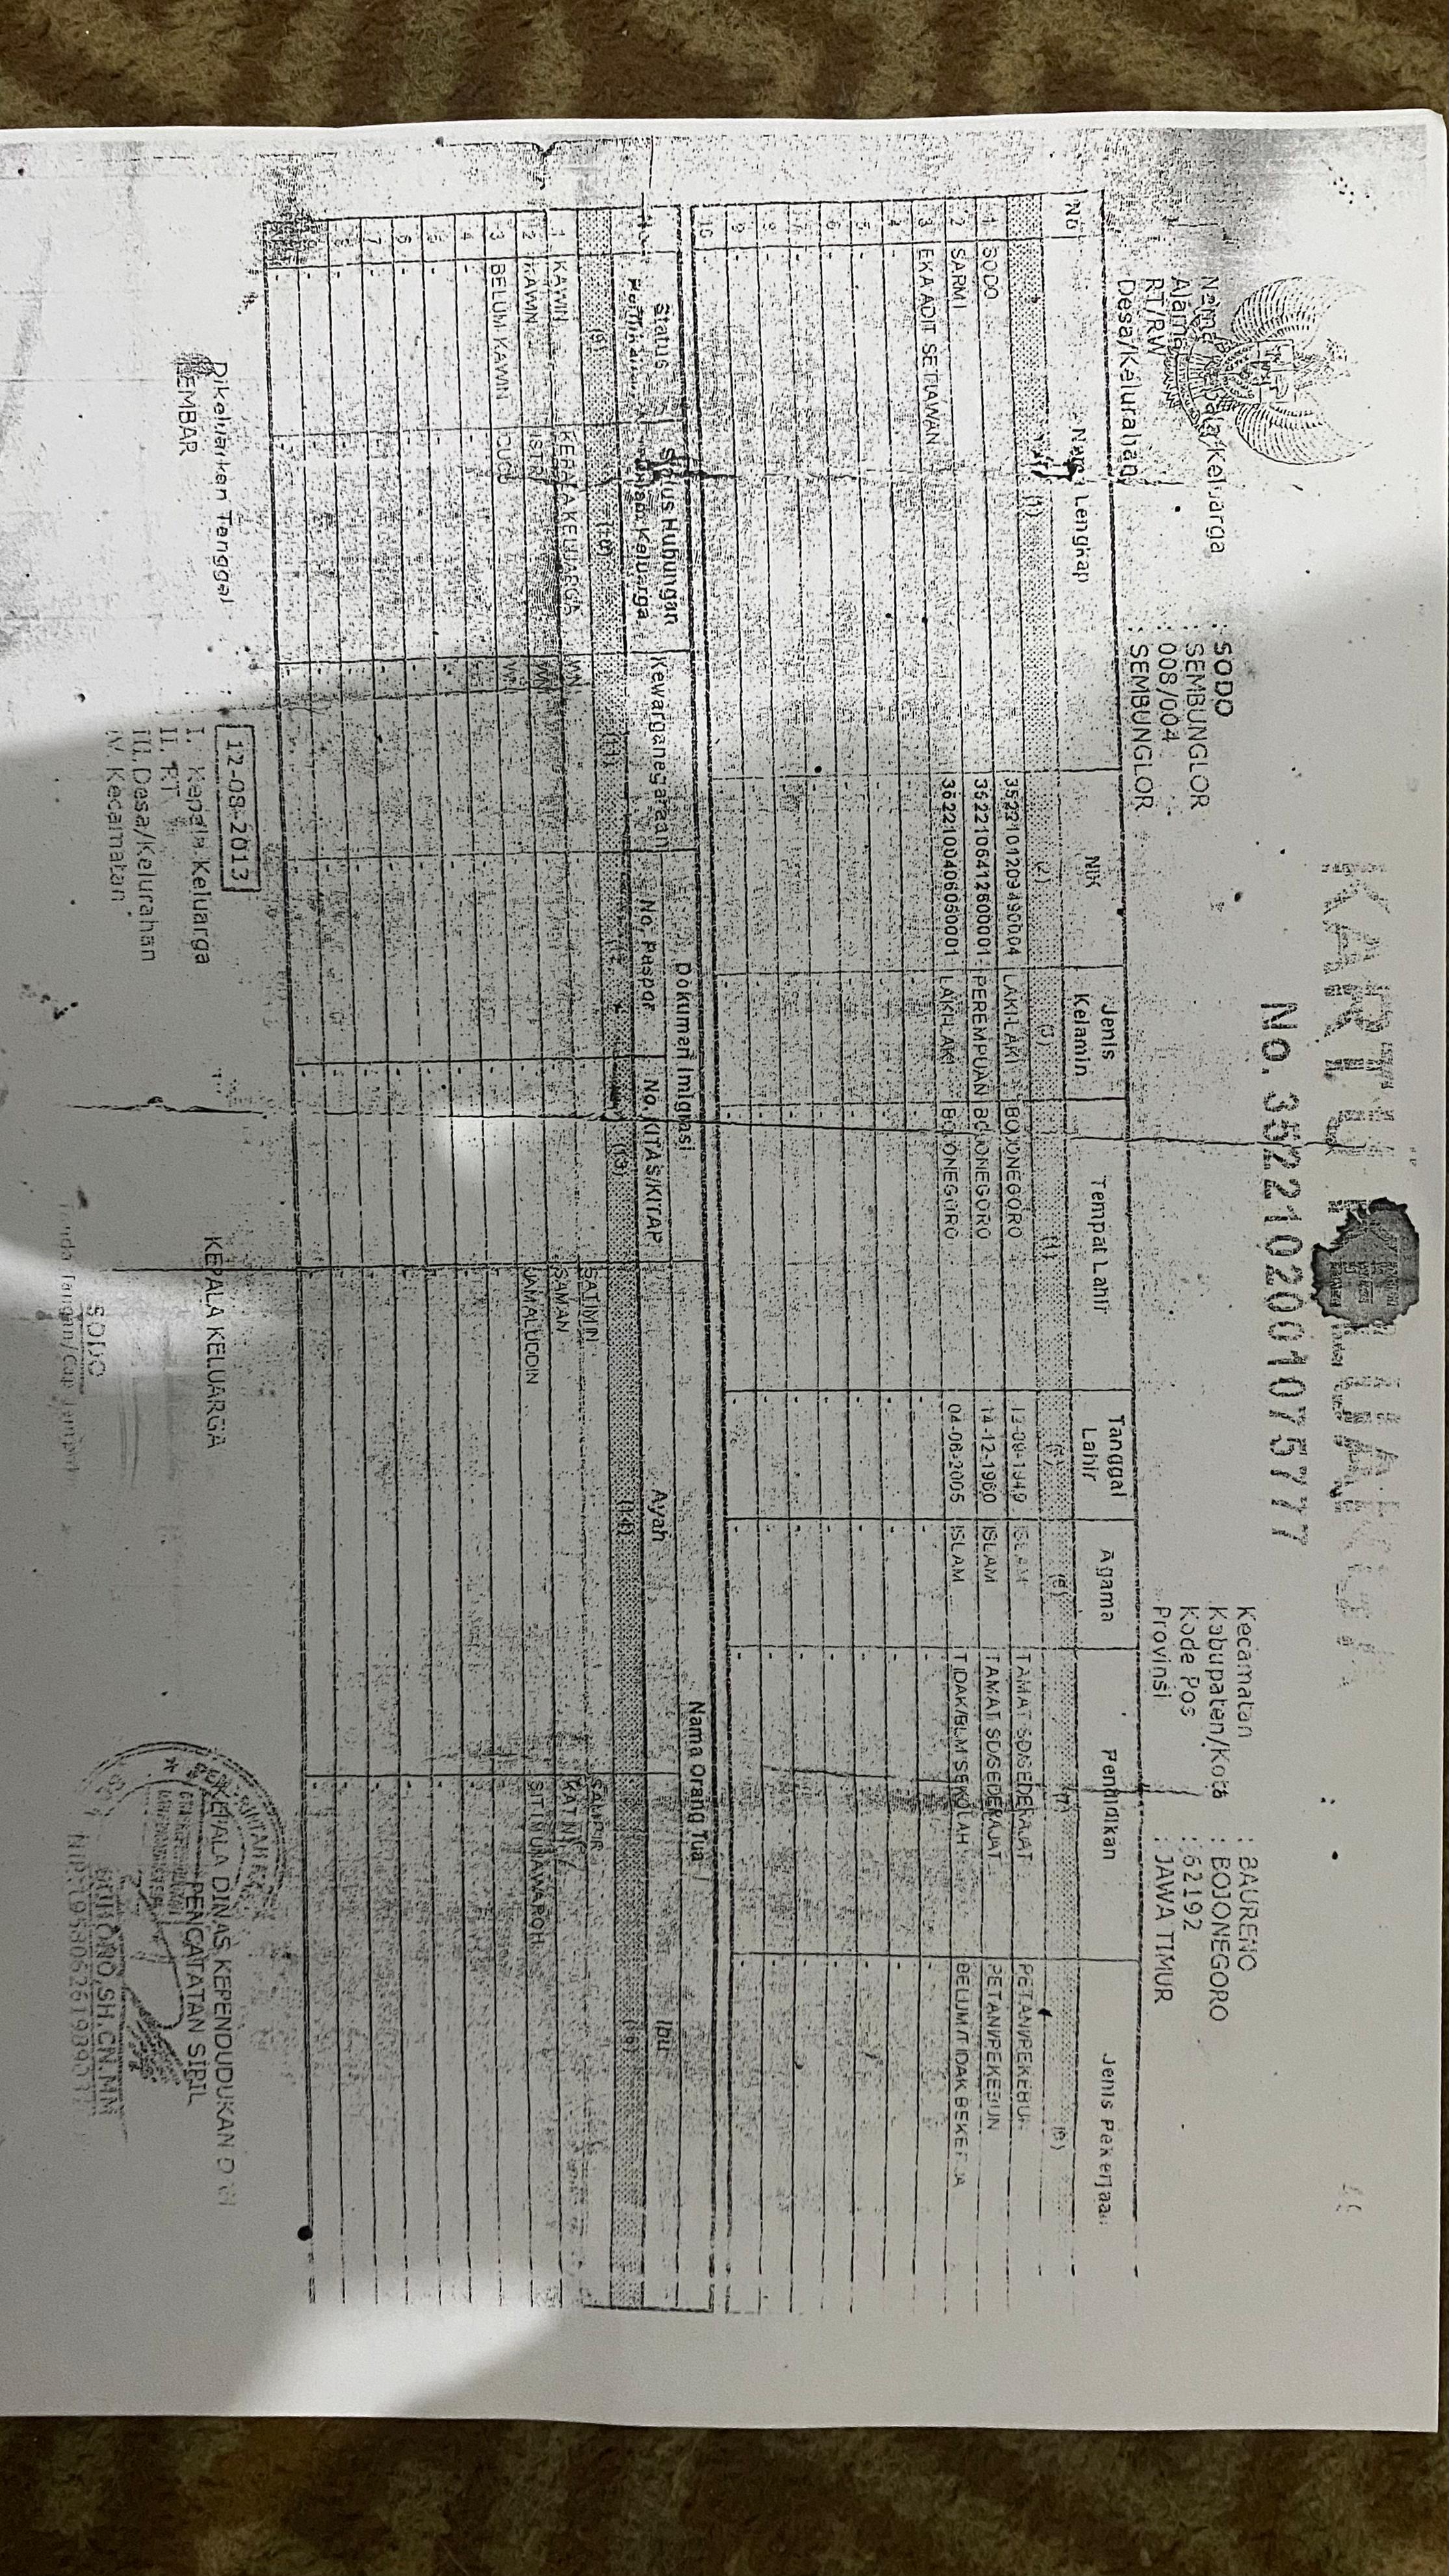 KARTU KELUARGA
No. 3522102001075777
Nama Kepala Keluarga : SODO
Alamat : SEMBUNGLOR
RT/RW : 008/004
Desa/Kelurahan : SEMBUNGLOR
Kecamatan : BAURENO
Kabupaten/Kota : BOJONEGORO
Kode Pos : 62192
Provinsi : JAWA TIMUR
No Nama Lengkap NIK Jenis Kelamin Tempat Lahir Tanggal Lahir Agama Pendidikan Jenis Pekerjaan
(1) (2) (3) (4) (5) (6) (7) (8)
1 SODO 3522101209490004 LAKI-LAKI BOJONEGORO 12-09-1949 ISLAM TAMAT SD/SEDERAJAT PETANI/PEKEBUN
2 SARMI 3522105412600001 PEREMPUAN BOJONEGORO 14-12-1960 ISLAM TAMAT SD/SEDERAJAT PETANI/PEKEBUN
3 EKA ADIT SETIAWAN 3522100406050001 LAKI-LAKI BOJONEGORO 04-06-2005 ISLAM TIDAK/BLM SEKOLAH BELUM/TIDAK BEKERJA
4 - - - - - - - -
5 - - - - - - - -
6 - - - - - - - -
7 - - - - - - - -
8 - - - - - - - -
9 - - - - - - - -
10 - - - - - - - -
Status Hubungan Dalam Keluarga Kewarganegaraan Dokumen Imigrasi Nama Orang Tua
Status No. Paspor No. KITAS/KITAP Ayah Ibu
(9) (10) (11) (12) (13) (14) (15)
1 KAWIN KEPALA KELUARGA WNI SATIMIN SAMPUR
2 KAWIN ISTRI WNI SAMAN KATINI
3 BELUM KAWIN CUCU WNI JAMALUDDIN SITI MUNAWAROH
4 - - - - - - -
5 - - - - - - -
6 - - - - - - -
7 - - - - - - -
8 - - - - - - -
Dikeluarkan Tanggal : 12-08-2013
LEMBAR : I. Kepala Keluarga
II. RT
III. Desa/Kelurahan
IV. Kecamatan
KEPALA KELUARGA
SODO
Tanda Tangan/Cap Jempol
KEPALA DINAS KEPENDUDUKAN DAN
PENCATATAN SIPIL
SH.CN.MM